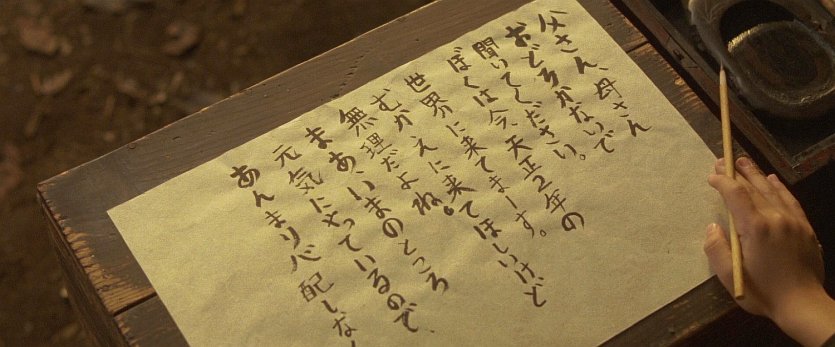 父さん、母さん
おどろかないで
聞いてください。
ぼくは今、天正2年の
世界に来てまーす。
むかえに来てほしいけど
無理だよね。
まあ、いまのところ
元気にやっているので、
あんまり心配しなく